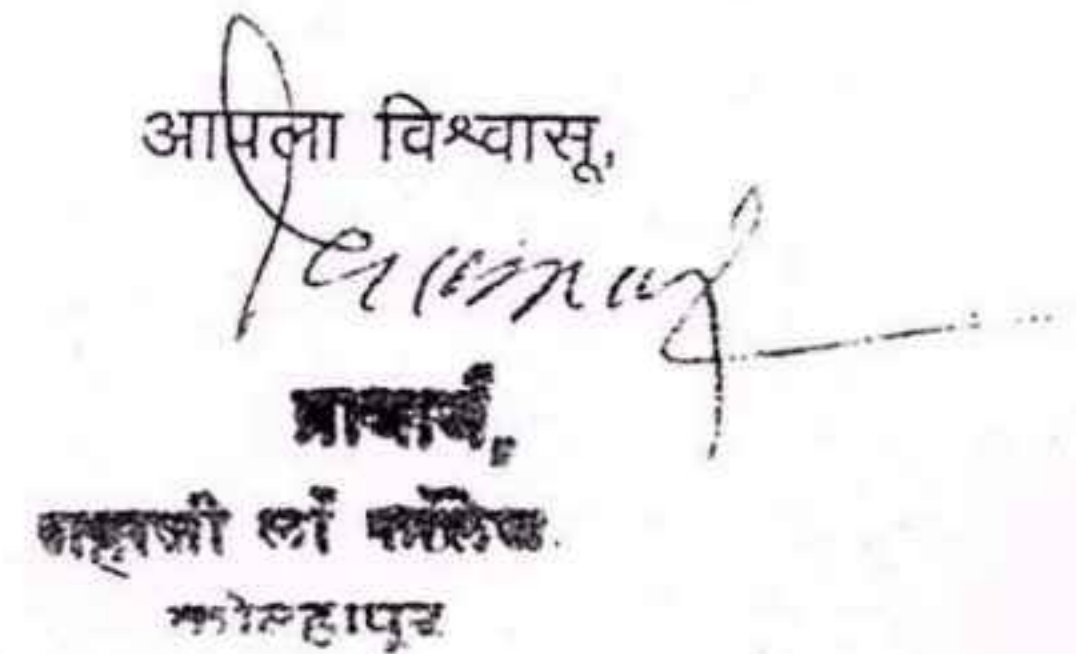 आपला विश्वासू,
प्राचार्य,
शहाजी लॉ कॉलेज
कोल्हापूर